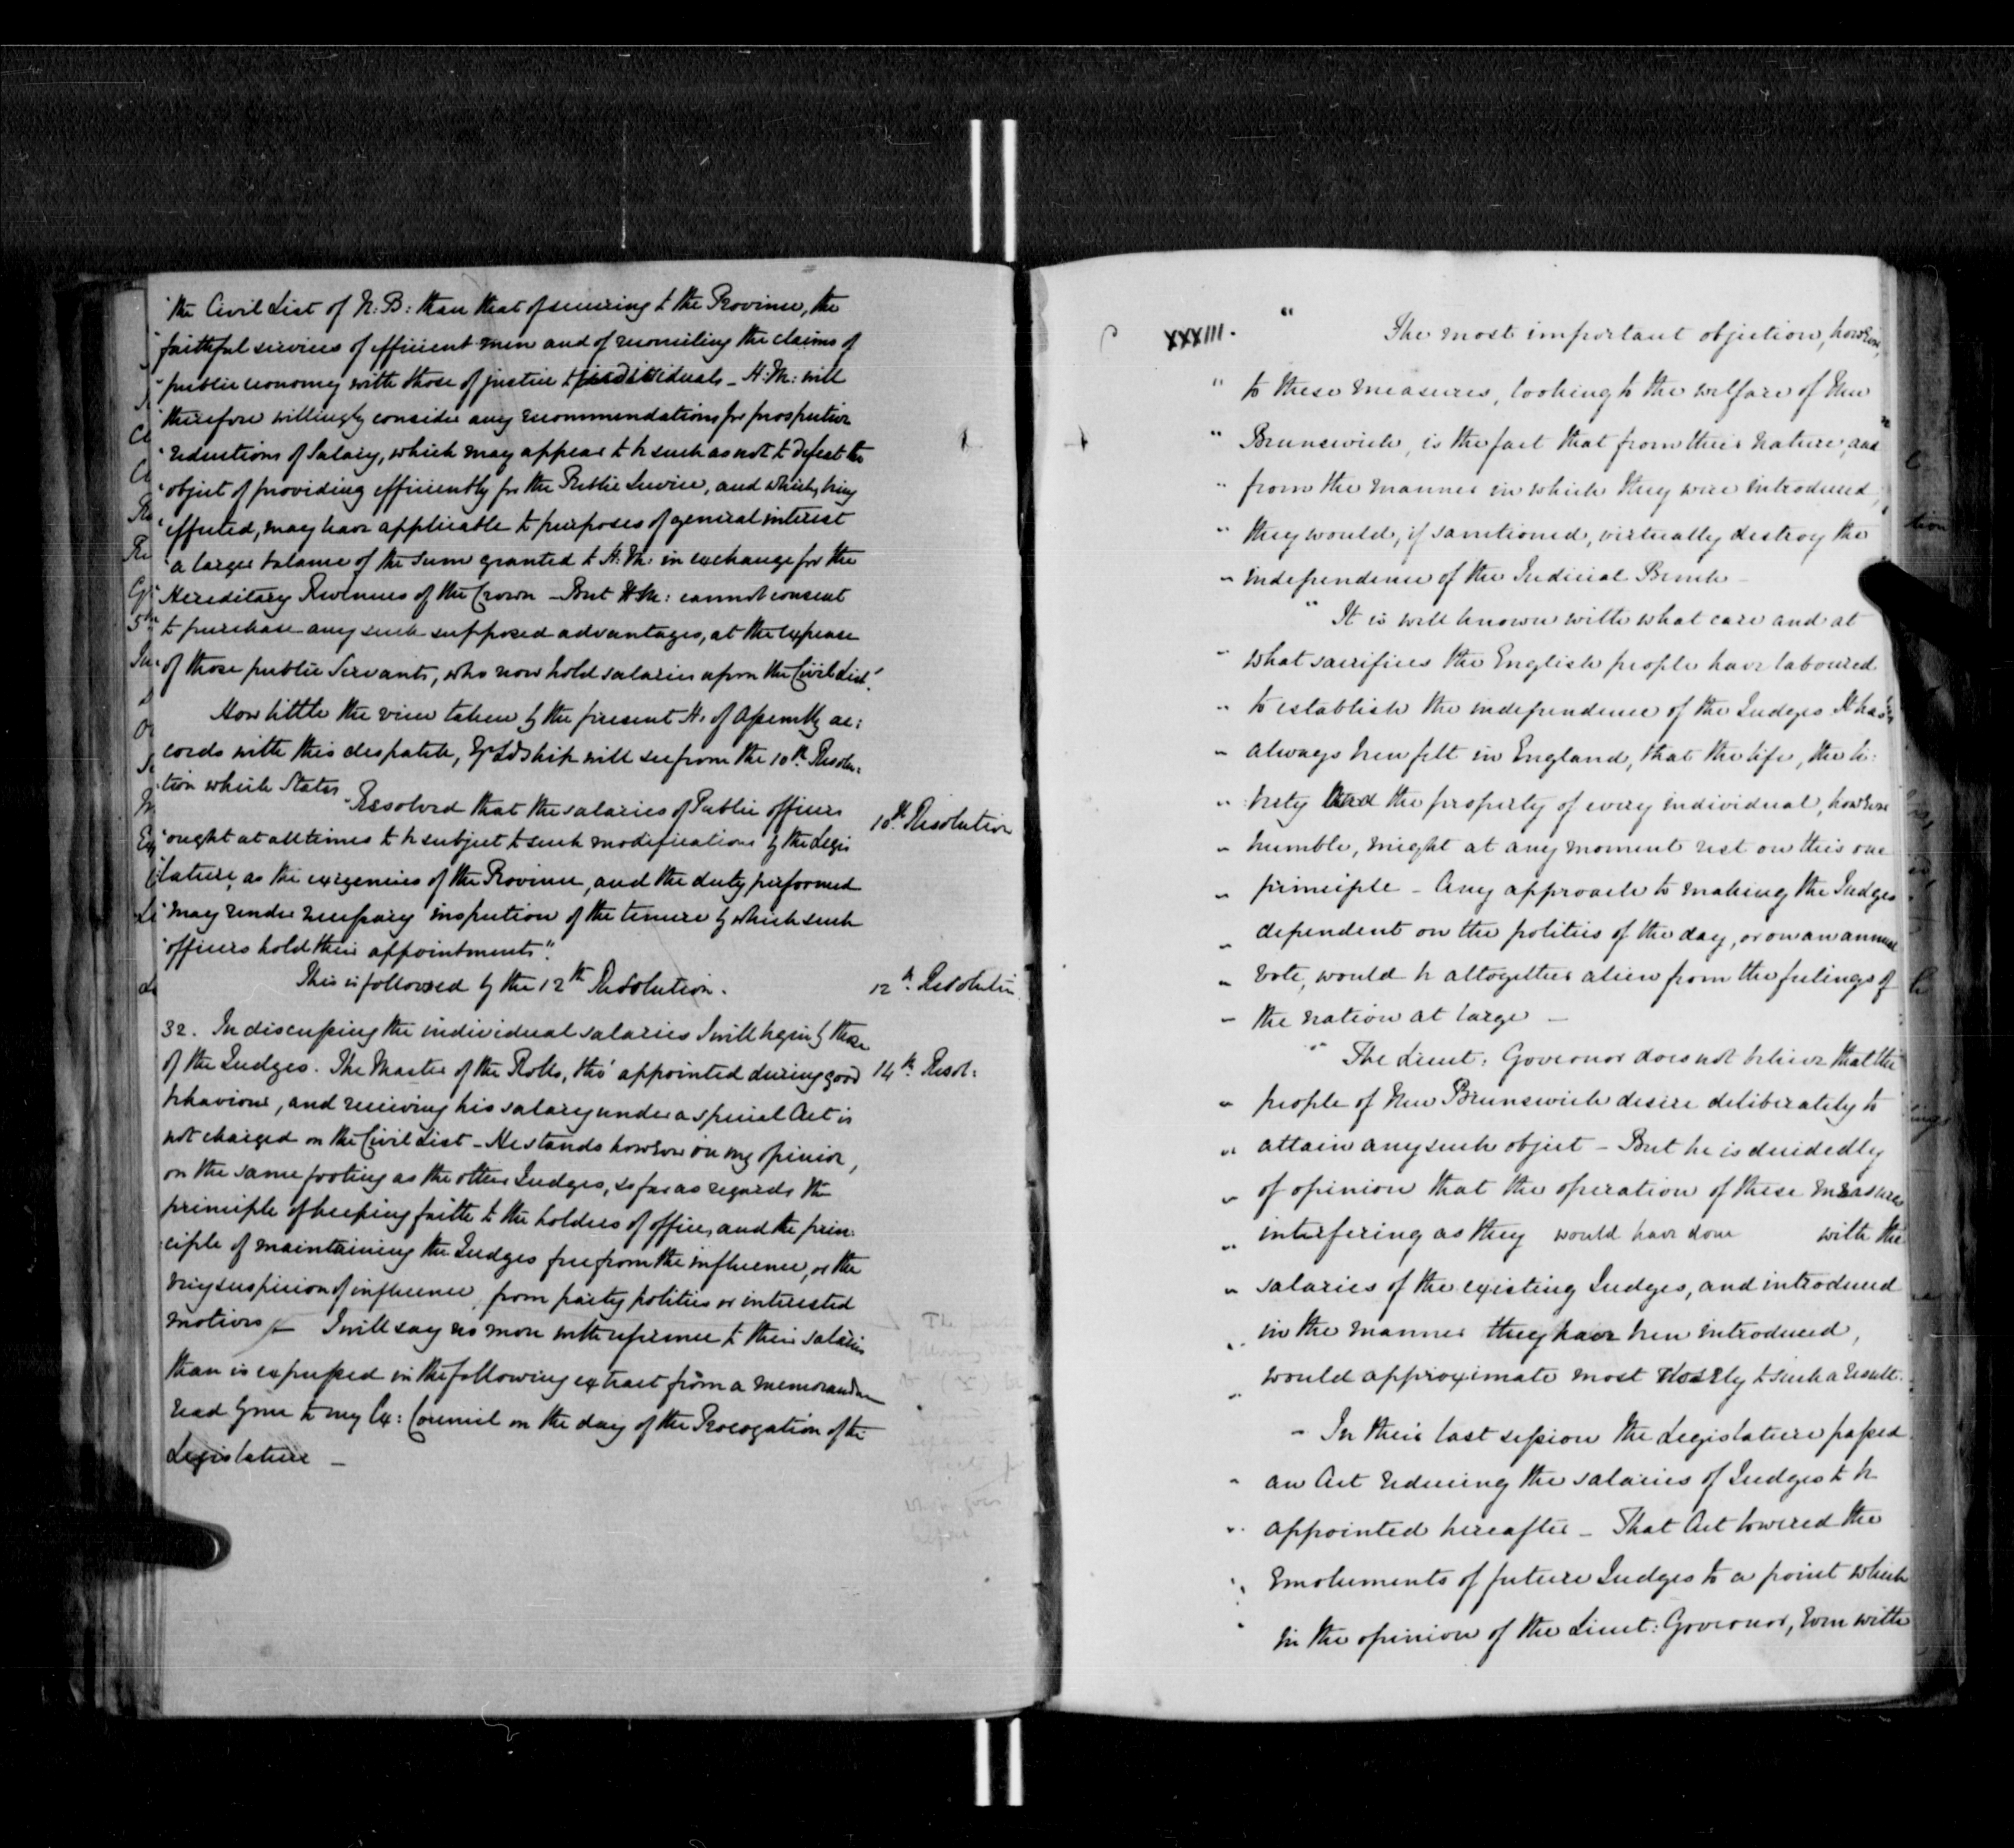 "the Civil List of N: B: than that of securing to the Province, the
"faithful services of efficient men and of reconciling the claims of
"public economy with those of justice to individuals – H: M: will
"therefore willingly consider any recommendations for prospective
"reductions of Salary, which may appear to be such as not to defeat the
"object of providing efficiently for the Public Service, and which, being
"effected, may have applicable to purposes of general interest
"a larger balance of the sum granted to H: M: in exchange for the
Hereditary Revenues of the Crown – But H:M: cannot consent
to purchase any such supposed advantages, at the expense
of those public Servants, who now hold salaries upon the Civil List."
How little the view taken by the present H: of Assembly ac:
cords with this despatch, Yr Ldship will see from the 10th Resolu:
tion which States
"Resolved that the salaries of Public officers
10th Resolution
"ought at all times to be subject to such modifications by the Legis
"lature, as the exigencies of the Province, and the duty performed
"may render necessary inspection of the tenure by which such
"officers hold their appointments".
This is followed by the 12th Resolution.
12th Resolution
32. In discussing the individual salaries I will begin by those
of the Judges. The Master of the Rolls, tho' appointed during good
14th Resol:
behaviour, and receiving his salary under a special Act is
not charged on the Civil List – He stands however in my opinion,
on the same footing as the other Judges, so far as regards the
principle of keeping faith to the holders of office, and the prin:
ciple of maintaining the Judges free from the influence, or the
very suspicion of influence, from party politics or interested
motives – I will say no more with reference to their salaries
than is expressed in the following extract from a memorandum
read by me to my Ex: Council on the day of the Prorogation of the
Legislature –
XXXIII. " The most important objection, however,
" to these measures, looking to the welfare of New
" Brunswick, is the fact that from their nature, and
" from the manner in which they were introduced,
" they would, if sanctioned, virtually destroy the
" independence of the Judicial Bench –
" It is well known with what care and at
" what sacrifices the English people have laboured
" to establish the independence of the Judges It has
" always been felt in England, that the life, the li:
" berty and the property of every individual, however
" humble, might at any moment rest on this one
" principle – Any approach to making the Judges
" dependent on the politics of the day, or on an annual
" vote, would be altogether alien from the feelings of
" the nation at large –
" The Lieut: Governor does not believe that the
" people of New Brunswick desire deliberately to
" attain any such object – But he is decidedly
" of opinion that the operation of these measures
" interfering as they would have done with the
" salaries of the existing Judges, and introduced
" in the manner they have been introduced,
" would approximate most closely to such a result.
" In their last session the Legislature passed
" an Act reducing the salaries of Judges to be
" appointed hereafter – That Act lowered the
" Emoluments of future Judges to a point which
" in the opinion of the Lieut: Governor, even with